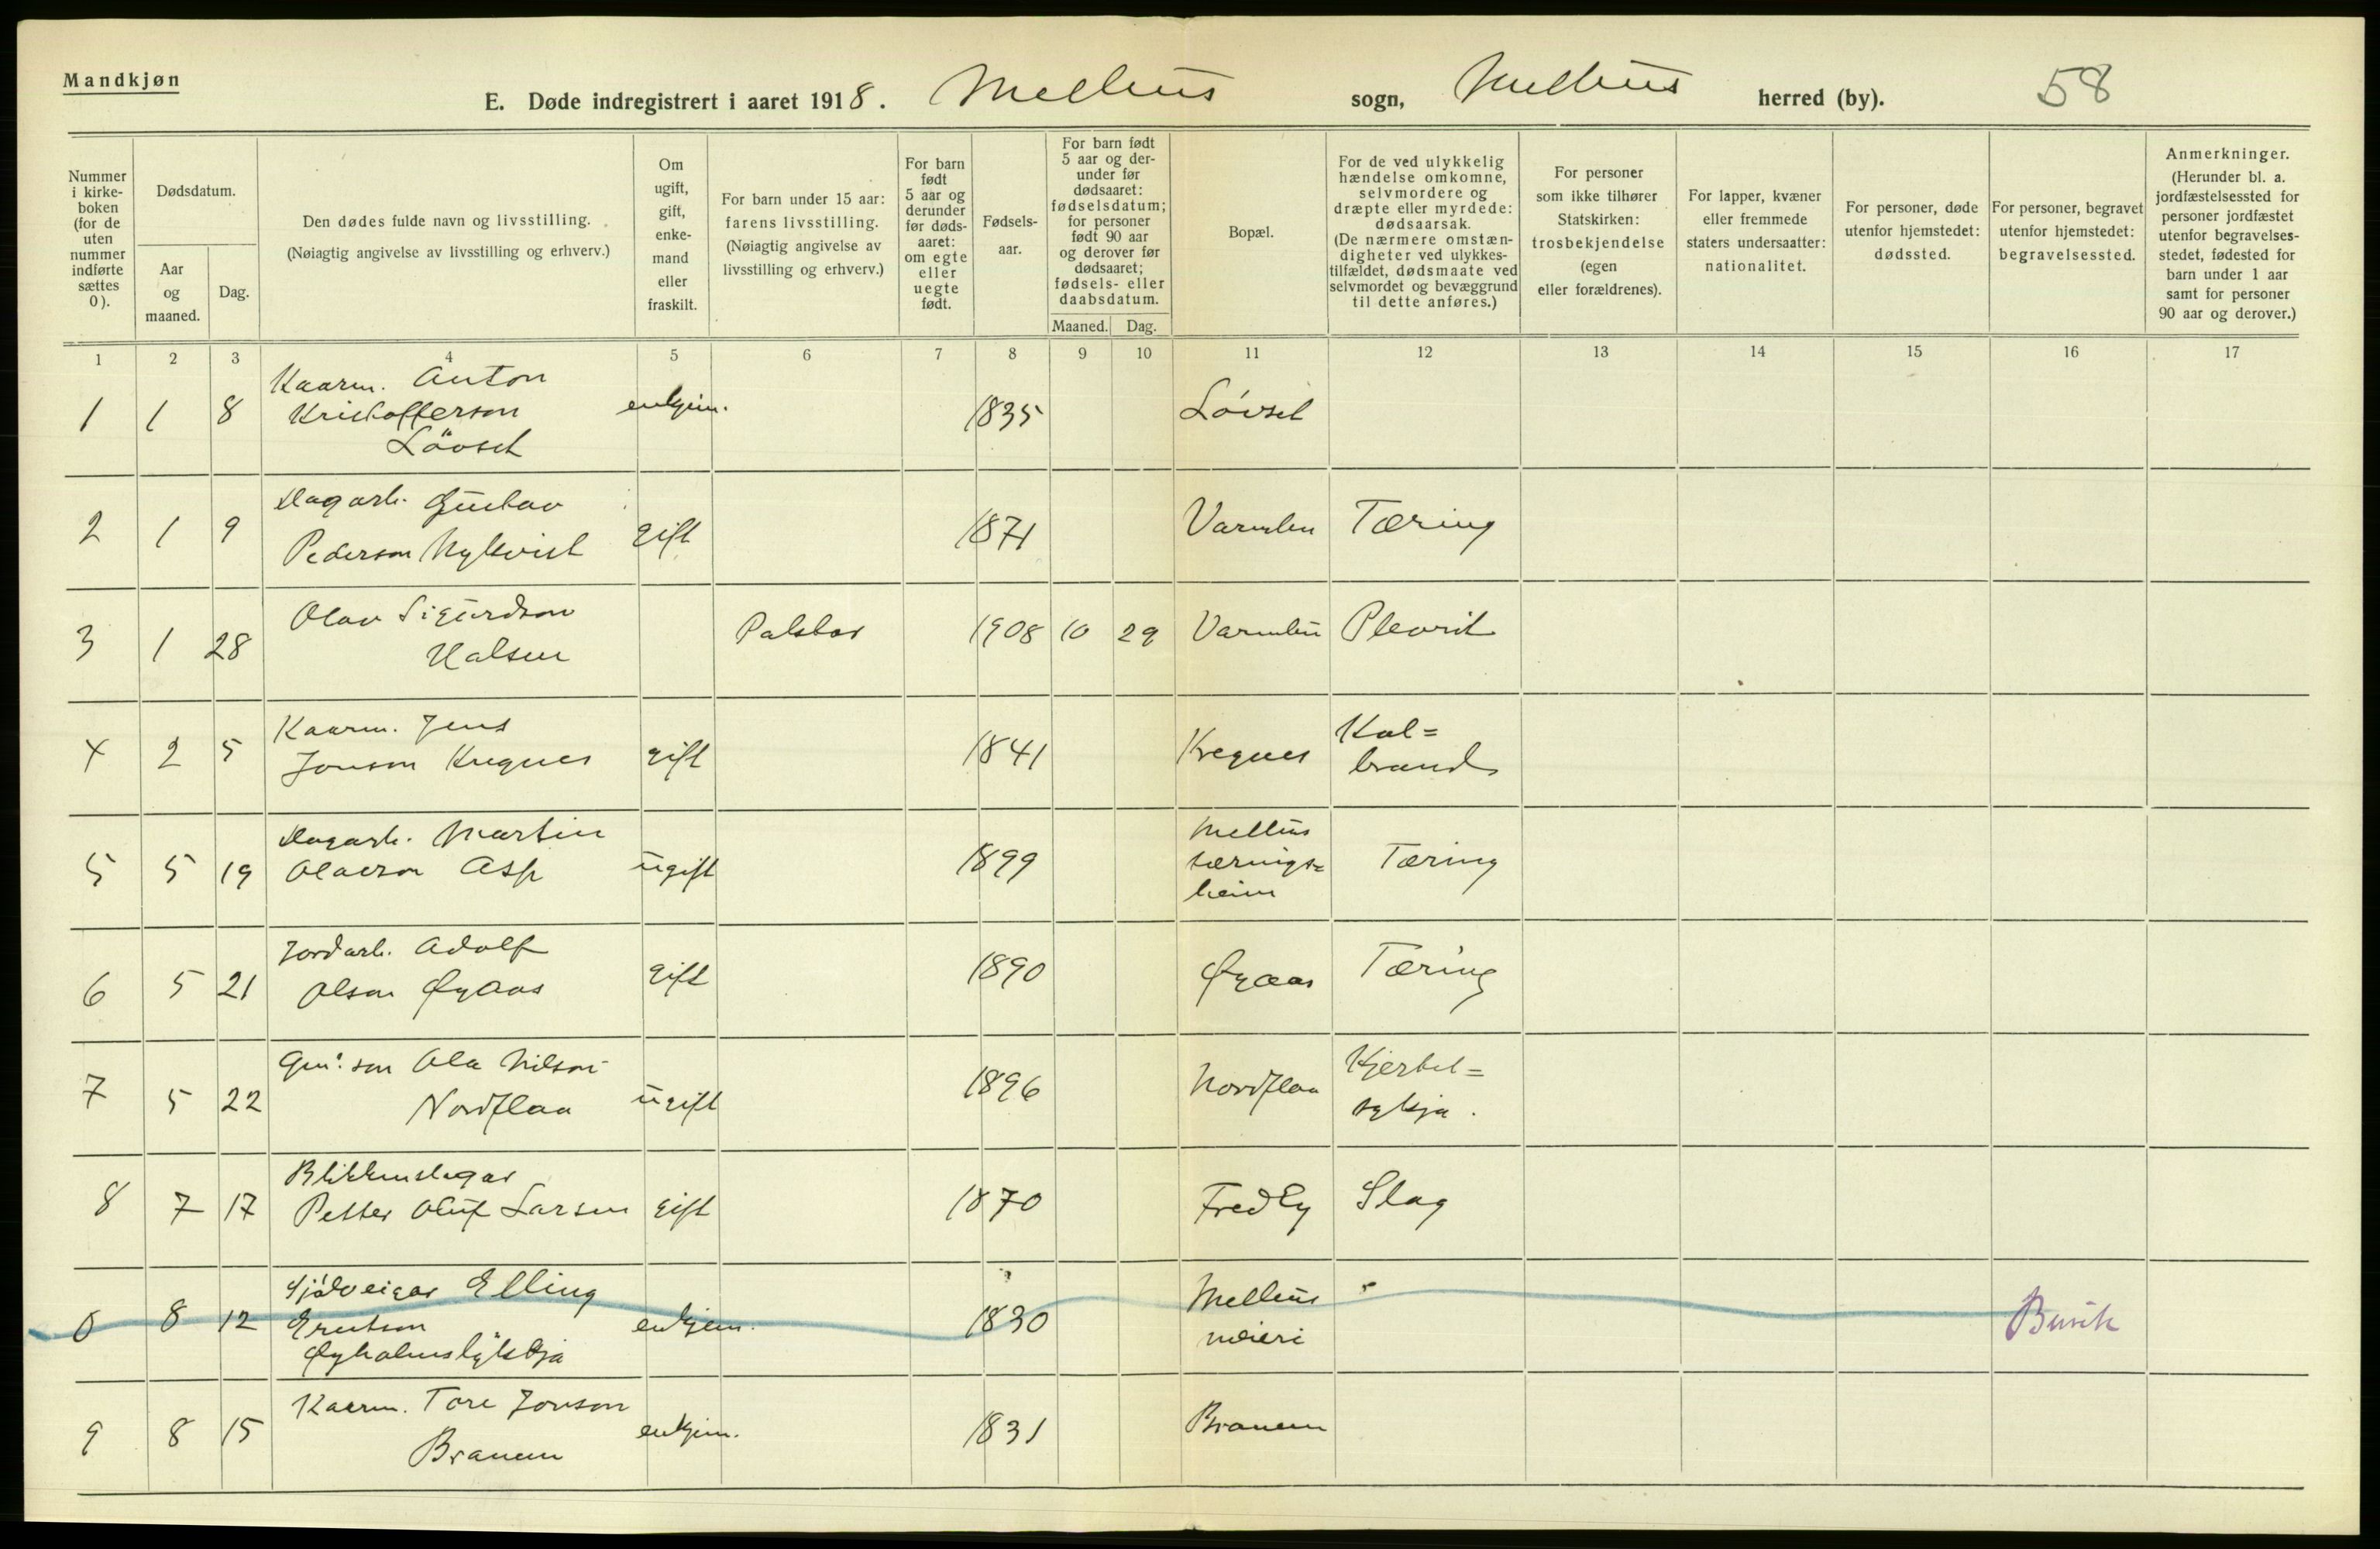 Mandkjøn
E. Døde indregistrert i aaret 1918. Melhus sogn, Melhus herred (by). 58
Nummer i kirke-boken (for de uten nummer indførte sættes 0).
Dødsdatum.
Aar og maaned.
Dag.
Den dødes fulde navn og livsstilling.
(Nøiagtig angivelse av livsstilling og erhverv.)
Om ugift, gift, enke-mand eller fraskilt.
For barn under 15 aar: farens livsstilling.
(Nøiagtig angivelse av livsstilling og erhverv.)
For barn født 5 aar og derunder før døds-aaret: om egte eller uegte født.
Fødsels-aar.
For barn født 5 aar og der-under før dødsaaret: fødselsdatum; for personer født 90 aar og derover før dødsaaret; fødsels- eller daabsdatum.
Maaned. Dag.
Bopæl.
For de ved ulykkelig hændelse omkomne, selvmordere og dræpte eller myrdede: dødsaarsak.
(De nærmere omstæn-digheter ved ulykkes-tilfældet, dødsmaate ved selvmordet og bevæggrund til dette anføres.)
For personer som ikke tilhører Statskirken: trosbekjendelse (egen eller forældrenes).
For lapper, kvæner eller fremmede staters undersaatter: nationalitet.
For personer, døde utenfor hjemstedet: dødssted.
For personer, begravet utenfor hjemstedet: begravelsessted.
Anmerkninger.
(Herunder bl. a. jordfæstelsessted for personer jordfæstet utenfor begravelses-stedet, fødested for barn under 1 aar samt for personer 90 aar og derover.)
1 2 3 4 5 6 7 8 9 10 11 12 13 14 15 16 17
Kaarm. Anton
1 1 8 Kristofferson enkjem. 1835 Løvset
Lövset
Dagarb. Gustav
2 1 9 Pederson Nykvist gift 1871 Varmbu Tæring
Olav Sigurdson
3 1 28 Halsen 1908 10 29 Varmbu Plevrit
Kaarm. Jens
4 2 5 Jonson Kregnes gift 1841 Kregnes Kol=
brand
Dagarb. Martin
5 5 19 Olavson Asp ugift 1899 Melhus
tærings=
heim
Tæring
Jordarb. Adolf
6 5 21 Olson Øyaas gift 1890 Øyaas Tæring
Gm. son Ola Nilson
7 5 22 Nordflaa ugift 1896 Nordflaa Hjertel=
sykja.
Blikkenslagar
8 7 17 Petter Oluf Larsen gift 1870 Fredly Slag
Sjölveigar Elling
0 8 12 enkjem. 1830 Melhus
meieri
Kaarm. Tore Jonson
9 8 15 Branem enkjem. 1831 Branem